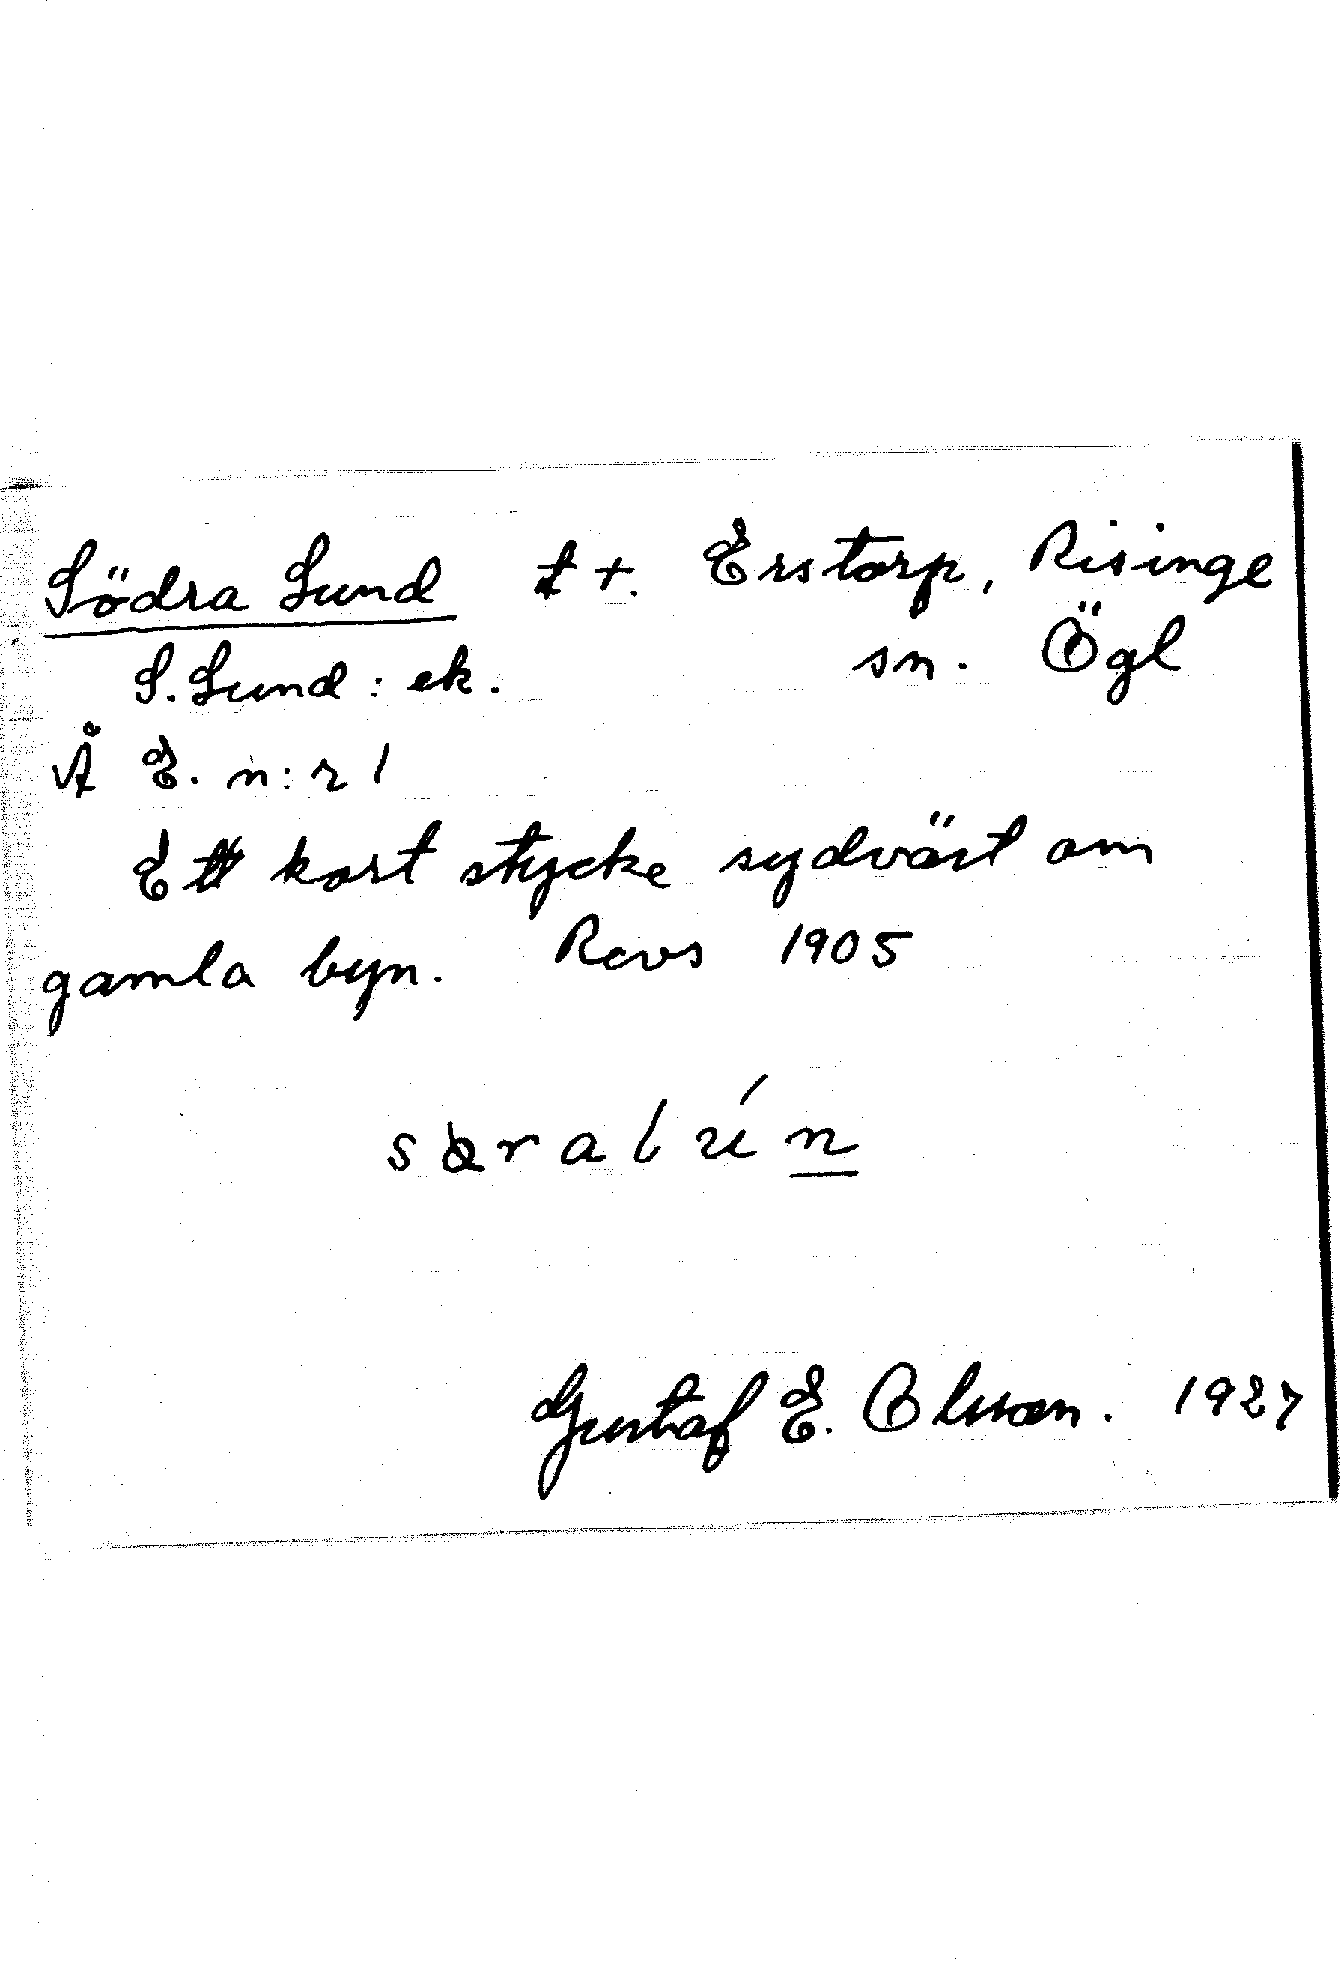 Södra Sund t +. Erstorp, Risinge
S. Sund: ek. sn. Ögl
Å E. n:r 1
Ett kort stycke sydväst om
gamla byn. Revs 1905
Gustaf E. Olsson. 1927